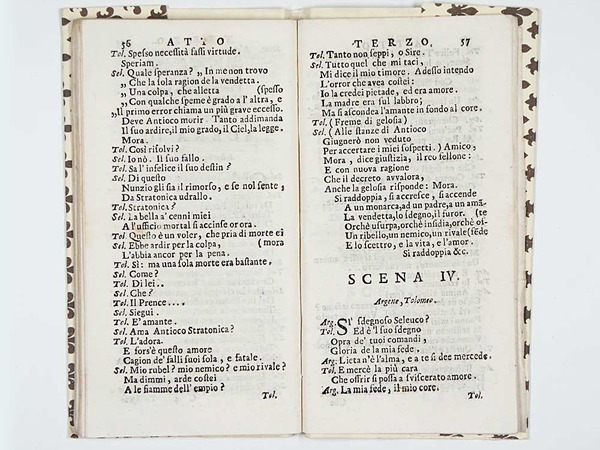 56 ATTO
Tol. Spesso necessità fassi virtude.
Speriam.
Sel. Quale speranza? „ In me non trovo
„ Che la sola ragion de la vendetta.
„ Una colpa, che alletta (spesso
„ Con qualche speme è grado a l'altra, e
„ Il primo error chiama un più grave eccesso.
Deve Antioco morir. Tanto addimanda
Il suo ardire, il mio grado, il Ciel, la legge.
Mora.
Tol. Così risolvi?
Sel. Io nò. Il suo fallo.
Tol. Sa l'infelice il suo destin?
Sel. Di questo
Nunzio gli sia il rimorso, e se nol sente,
Da Stratonica udrallo.
Tol. Stratonica?
Sel. La bella a' cenni miei
A l'ufficio mortal si accinse or ora.
Tol. Questo è un voler, che pria di morte ei
Sel. Ebbe ardir per la colpa, (mora
L'abbia ancor per la pena.
Tol. Sì: ma una sola morte era bastante.
Sel. Come?
Tol. Di lei..
Sel. Che?
Tol. Il Prence....
Sel. Siegui.
Tol. E' amante.
Sel. Ama Antioco Stratonica?
Tol. L'adora.
E fors'è questo amore
Cagion de' falli suoi sola, e fatale.
Sel. Mio rubel? mio nemico? e mio rivale?
Ma dimmi, arde costei
A le fiamme dell'empio?
Tol.
TERZO. 57
Tol. Tanto non seppi, o Sire.
Sel. Tutto quel che mi taci,
Mi dice il mio timore. Adesso intendo
L'error che avea costei:
Io la credei pietade, ed era amore.
La madre era sul labbro;
Ma si ascondea l'amante in fondo al core.
Tol. (Freme di gelosia)
Sel. (Alle stanze di Antioco
Giugnerò non veduto
Per accertare i miei sospetti.) Amico,
Mora, dice giustizia, il reo fellone:
E con nuova ragione
Che il decreto avvalora,
Anche la gelosia risponde: Mora.
Si raddoppia, si accresce, si accende
A un monarca, ad un padre, a un amã-
La vendetta, lo sdegno, il furor. (te
Orchè usurpa, orchè insidia, orchè of-
Un ribello, un nemico, un rivale (fẽde
E lo scettro, e la vita, e l'amor.
Si raddoppia &c.
SCENA IV.
Argene, Tolomeo.
Arg. SI' sdegnoso Seleuco?
Tol. Ed è 'l suo sdegno
Opra de' tuoi comandi,
Gloria de la mia fede.
Arg. Lieta n'è l'alma, e a te si dee mercede.
Tol. E mercè la più cara
Che offrir si possa a sviscerato amore.
Arg. La mia fede, il mio core.
Tol.